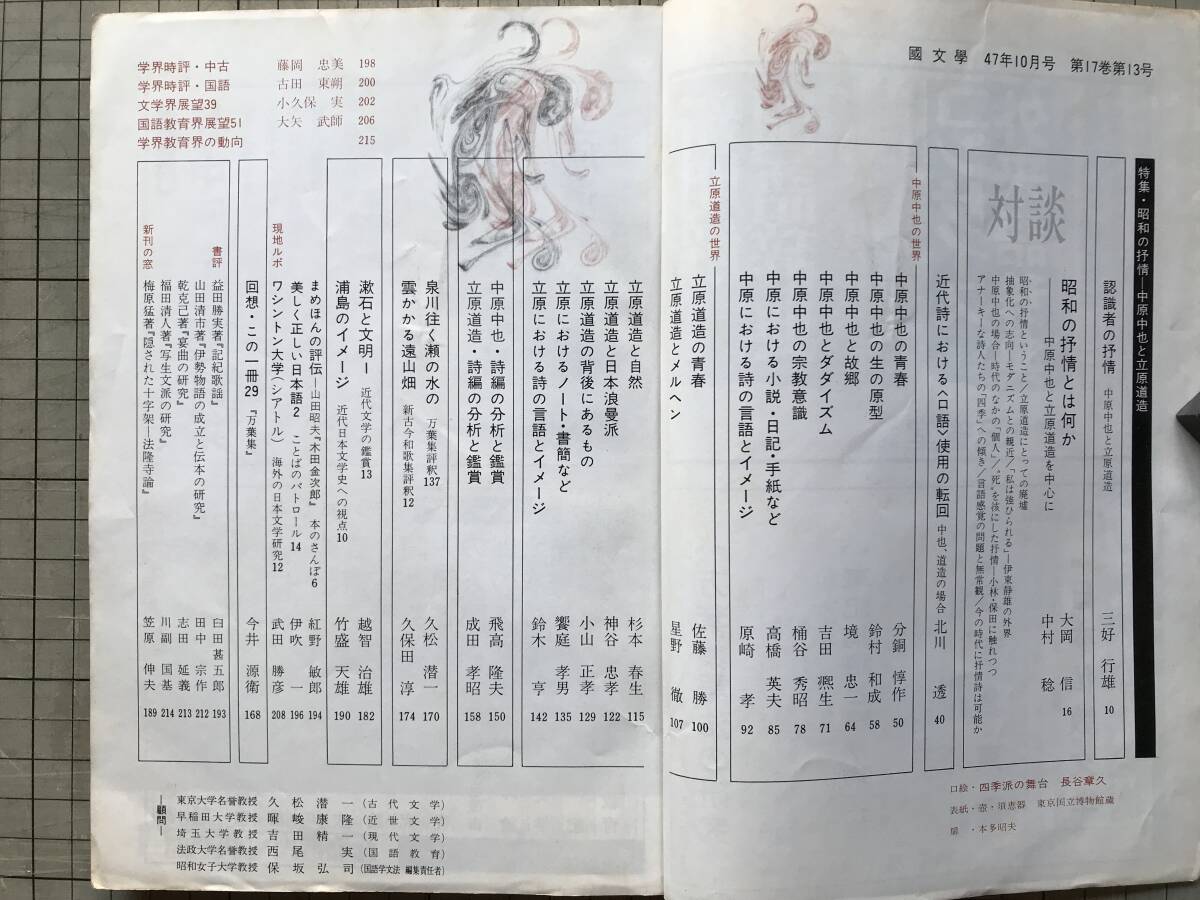 國文學 47年10月号 第17巻第13号
特集・昭和の抒情―中原中也と立原道造
認識者の抒情 中原中也と立原道造 三好行雄 10
対談
昭和の抒情とは何か
―中原中也と立原道造を中心に
大岡 信
中村 稔
16
昭和の抒情ということ/立原道造にとっての廃墟
抽象化への志向―モダニズムとの親近/「私は強ひられる」―伊東静雄の外界
中原中也の場合―時代のなかの「個人」/〝死〟を核にした抒情―小林・保田に触れつつ
アナーキーな詩人たちの「四季」への傾き/言語感覚の問題と無常観/今の時代に抒情詩は可能か
近代詩における〈口語〉使用の転回 中也、道造の場合 北川 透 40
中原中也の世界
中原中也の青春 分銅惇作 50
中原中也の生の原型 鈴村和成 58
中原中也と故郷 境 忠一 64
中原中也とダダイズム 吉田凞生 71
中原中也の宗教意識 桶谷秀昭 78
中原における小説・日記・手紙など 高橋英夫 85
中原における詩の言語とイメージ 原崎 孝 92
立原道造の世界
立原道造の青春 佐藤 勝 100
立原道造とメルヘン 星野 徹 107
立原道造と自然 杉本春生 115
立原道造と日本浪曼派 神谷忠孝 122
立原道造の背後にあるもの 小山正孝 129
立原におけるノート・書簡など 饗庭孝男 135
立原における詩の言語とイメージ 鈴木 亨 142
中原中也・詩編の分析と鑑賞 飛高隆夫 150
立原道造・詩編の分析と鑑賞 成田孝昭 158
泉川往く瀬の水の 万葉集評釈137 久松潜一 170
雲かかる遠山畑 新古今和歌集評釈12 久保田 淳 174
漱石と文明Ⅰ 近代文学の鑑賞13 越智治雄 182
浦島のイメージ 近代日本文学史への視点10 竹盛天雄 190
まめほんの評伝―山田昭夫『木田金次郎』 本のさんぽ6 紅野敏郎 194
美しく正しい日本語2 ことばのパトロール14 伊吹 一 196
現地ルポ
ワシントン大学(シアトル) 海外の日本文学研究12 武田勝彦 208
回想・この一冊29 『万葉集』 今井源衛 168
書評
益田勝実著『記紀歌謡』 臼田甚五郎 193
山田清市著『伊勢物語の成立と伝本の研究』 田中宗作 212
乾克己著『宴曲の研究』 志田延義 213
福田清人著『写生文派の研究』 川副国基 214
新刊の窓
梅原猛著『隠された十字架―法隆寺論』 笠原伸夫 189
学界時評・中古 藤岡忠美 198
学界時評・国語 古田東朔 200
文学界展望39 小久保 実 202
国語教育界展望51 大矢武師 206
学界教育界の動向 215
口絵・四季派の舞台 長谷章久
表紙・壺・須恵器 東京国立博物館蔵
扉・本多昭夫
―顧問―
東京大学名誉教授 久松潜一(古代文学)
早稲田大学教授 暉峻康隆(近世文学)
埼玉大学教授 吉田精一(現代文学)
法政大学名誉教授 西尾 実(国語教育)
昭和女子大学教授 保坂弘司(国語学文法 編集責任者)